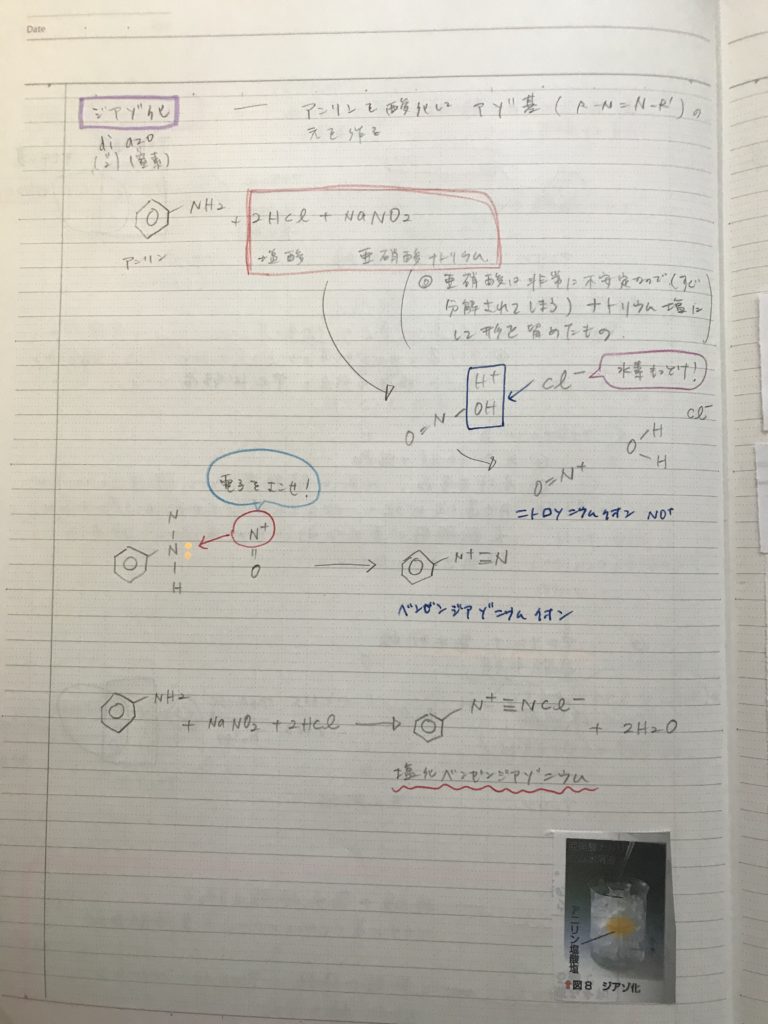 Date
ジアゾ化 — アニリンを酸化して アゾ基 ( R-N=N-R' ) の
元を作る
di azo
(2) (窒素)
NH2 + 2HCl + NaNO2
アニリン 塩酸 亜硝酸ナトリウム
◎ 亜硝酸は非常に不安定なので(すぐ
分解されてしまう) ナトリウム塩に
して形を留めたもの.
H+ Cl- 水素もっとけ!
O=N-OH
Cl-
O=N+ H-O-H
ニトロソニウムイオン NO+
電子をよこせ!
N N+
N
H O
N+≡N
ベンゼンジアゾニウムイオン
NH2 + NaNO2 + 2HCl → N+≡NCl- + 2H2O
塩化ベンゼンジアゾニウム
アニリン塩酸塩
図8 ジアゾ化